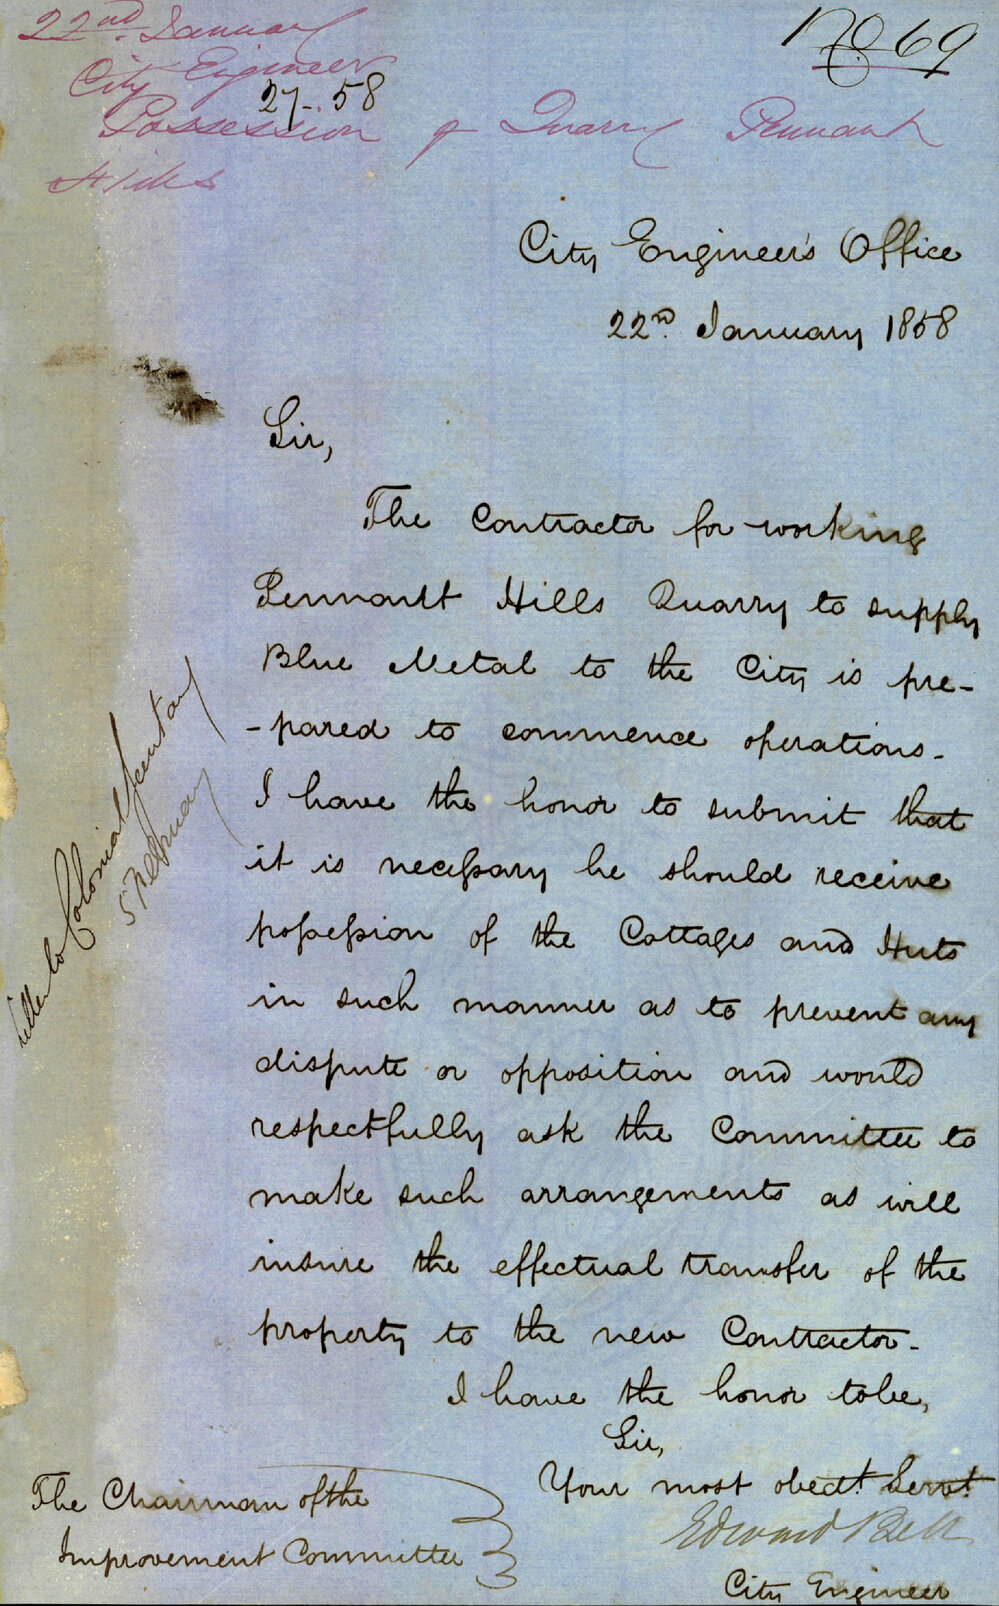 22nd. January
No 69
City Engineer
27-58
Possession of Quarry Pennant
Hills
City Engineer's Office
22nd. January 1858
Sir,
The Contractor for working
Pennant Hills Quarry to supply
Blue Metal to the City is pre-
-pared to commence operations-
I have the honor to submit that
it is necessary he should receive
possession of the Cottages and Huts
in such manner as to prevent any
dispute or opposition and would
respectfully ask the Committee to
make such arrangements as will
insure the effectual transfer of the
property to the new Contractor-
I have the honor to be,
Sir,
Your most obedt. Servt.
Edward Bell
City Engineer
The Chairman of the
Improvement Committee
Letter to Colonial Secretary
5 February